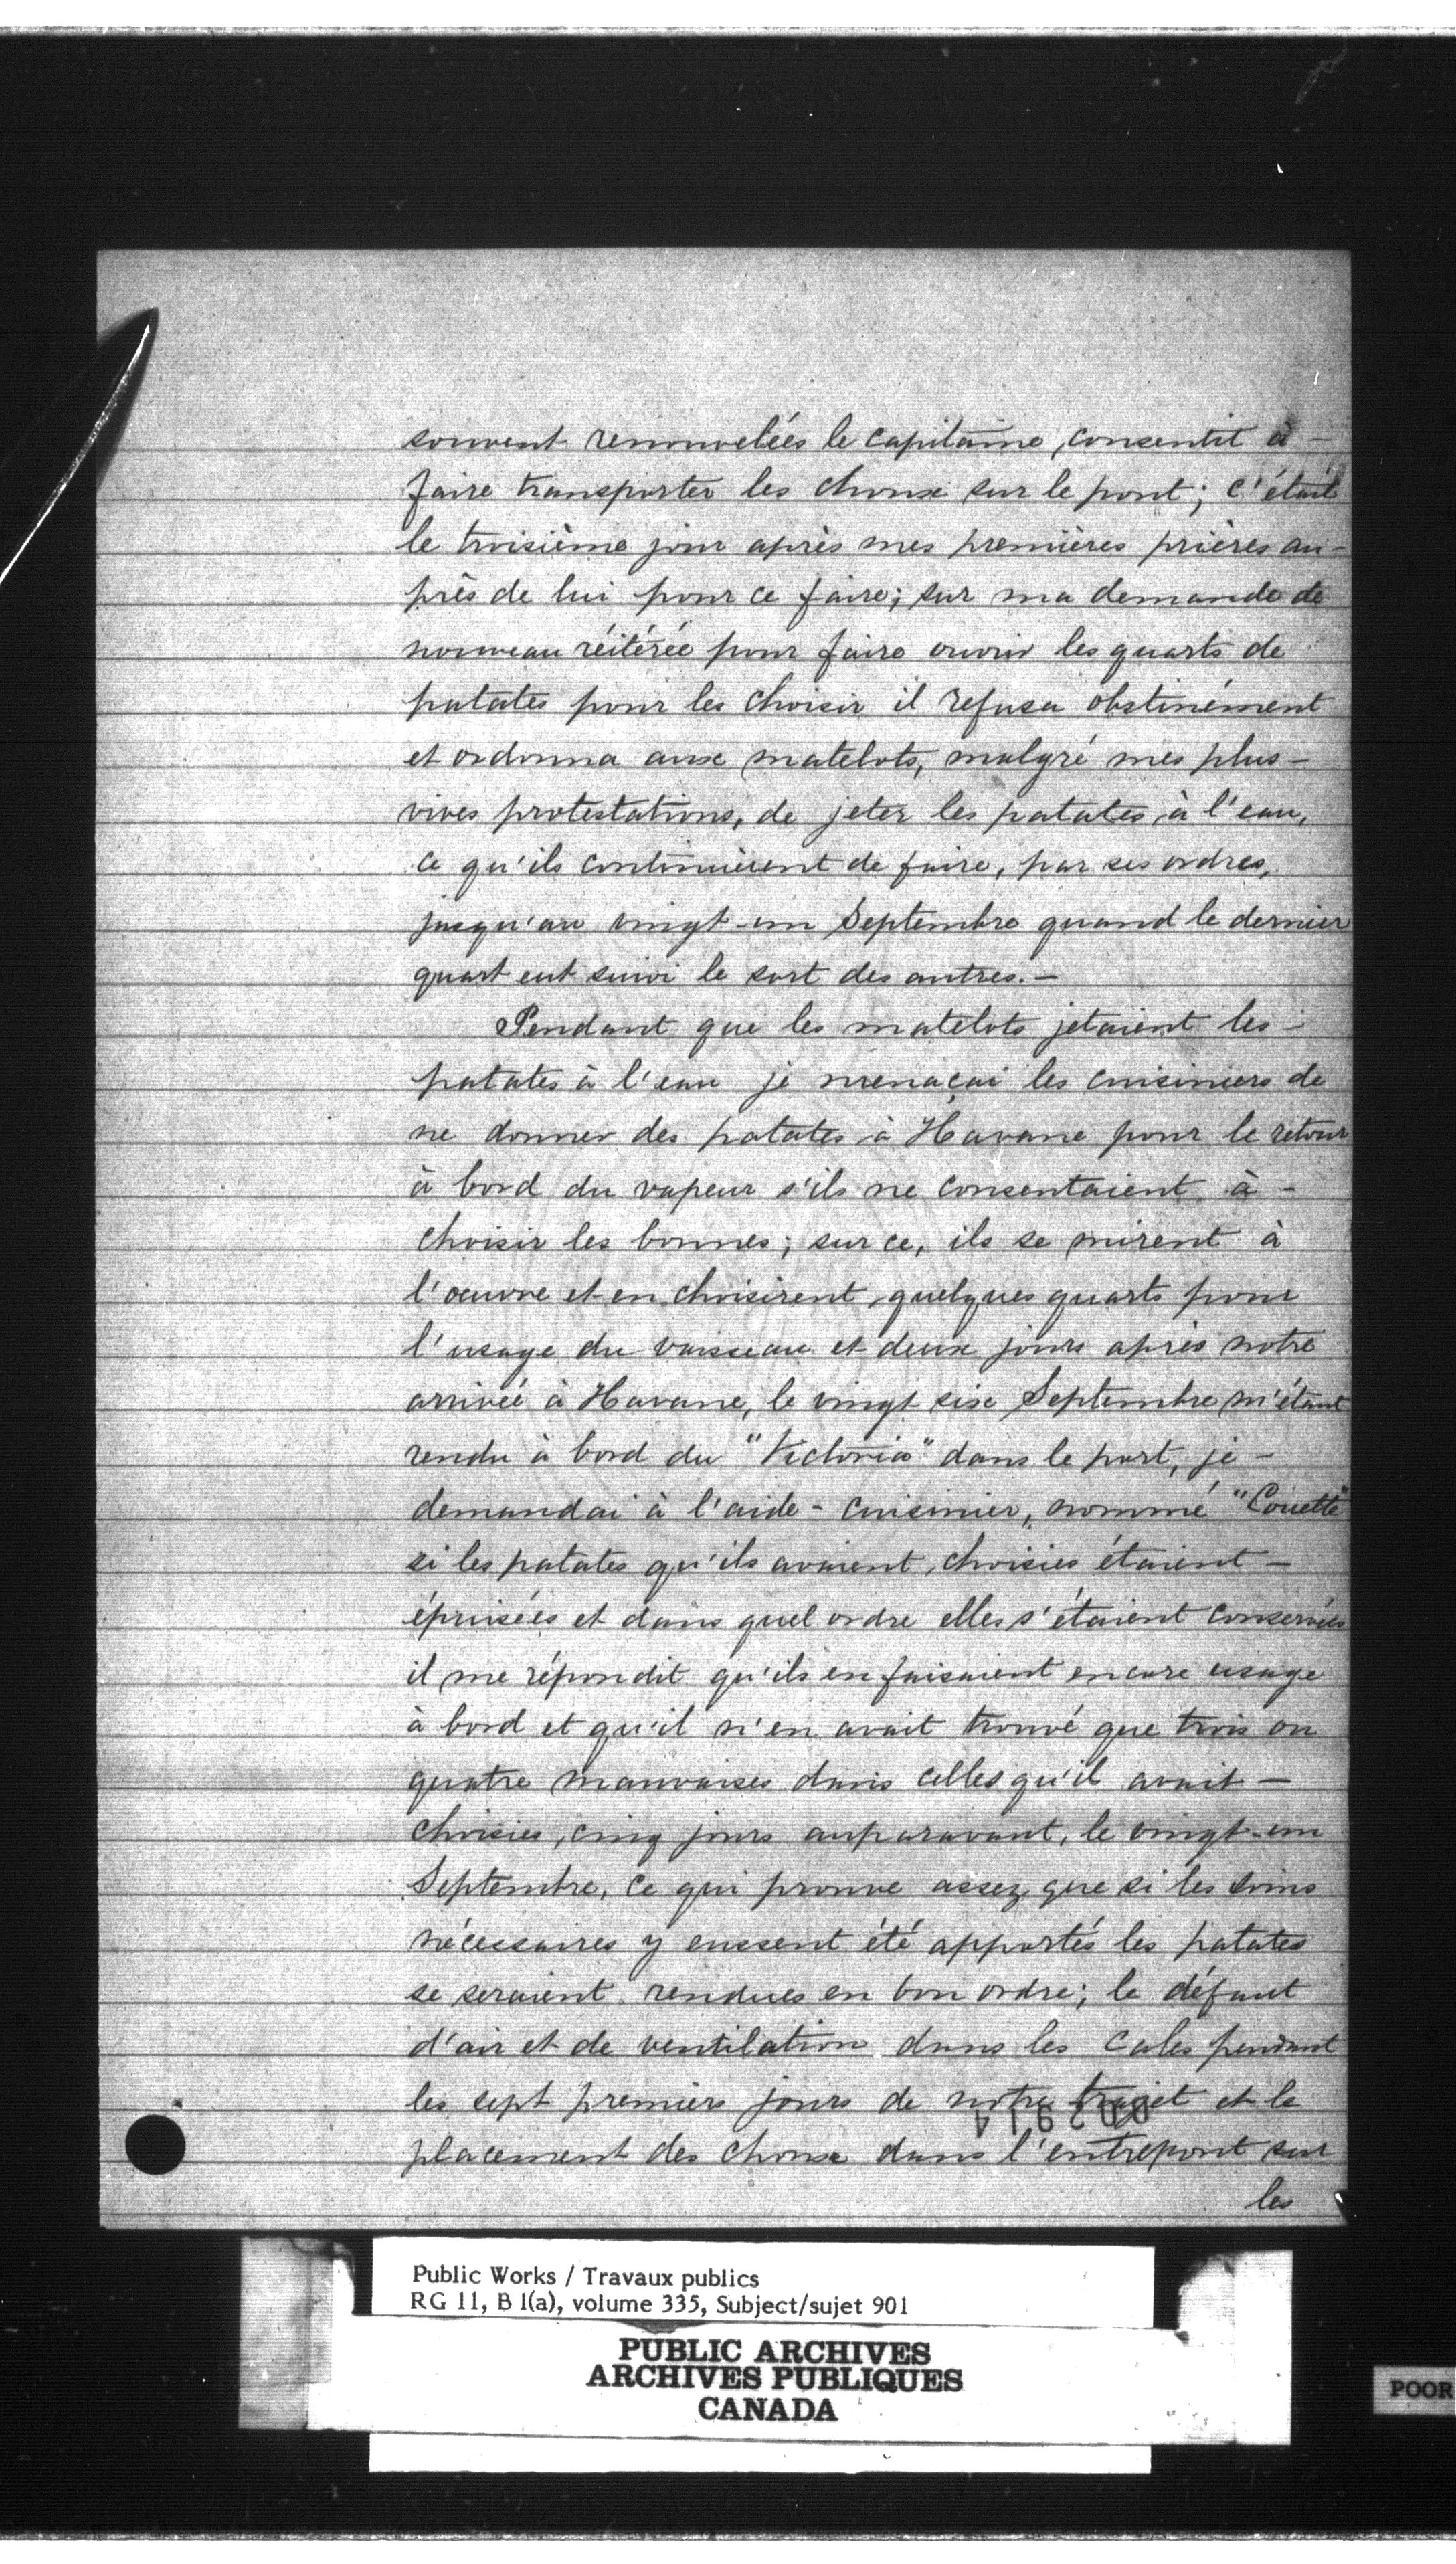 souvent renouvelées le capitaine, consentit à -
faire transporter les choux sur le pont; c'était
le troisième jour après mes premières prières au-
près de lui pour ce faire; sur ma demande de
nouveau réitérée pour faire ouvrir les quarts de
patates pour les choisir il refusa obstinément
et ordonna aux matelots, malgré mes plus -
vives protestations, de jeter les patates à l'eau,
ce qu'ils continuèrent de faire, par ses ordres,
jusqu'au vingt-un Septembre quand le dernier
quart eut suivi le sort des autres. -
Pendant que les matelots jetaient les -
patates à l'eau je menaçai les cuisiniers de
ne donner des patates à Havane pour le retour
à bord du vapeur s'ils ne consentaient à -
choisir les bonnes; sur ce, ils se mirent à
l'oeuvre et en choisirent quelques quarts pour
l'usage du vaisseau et deux jours après notre
arrivée à Havane, le vingt six Septembre m'étant
rendu à bord du "Victoria" dans le port, je -
demandai à l'aide-cuisinier, nommé "Couette"
si les patates qu'ils avaient choisies étaient -
épuisées et dans quel ordre elles s'étaient conservées
il me répondit qu'ils en faisaient encore usage
à bord et qu'il n'en avait trouvé que trois ou
quatre mauvaises dans celles qu'il avait -
choisies, cinq jours auparavant, le vingt-un
Septembre, ce qui prouve assez que si les soins
nécessaires y eussent été apportés les patates
se seraient rendues en bon ordre; le défaut
d'air et de ventilation dans les cales pendant
les sept premiers jours de notre trajet et le
placement des choux dans l'entrepont sur
les
Public Works / Travaux publics
RG 11, B 1(a), volume 335, Subject/sujet 901
PUBLIC ARCHIVES
ARCHIVES PUBLIQUES
CANADA
POOR